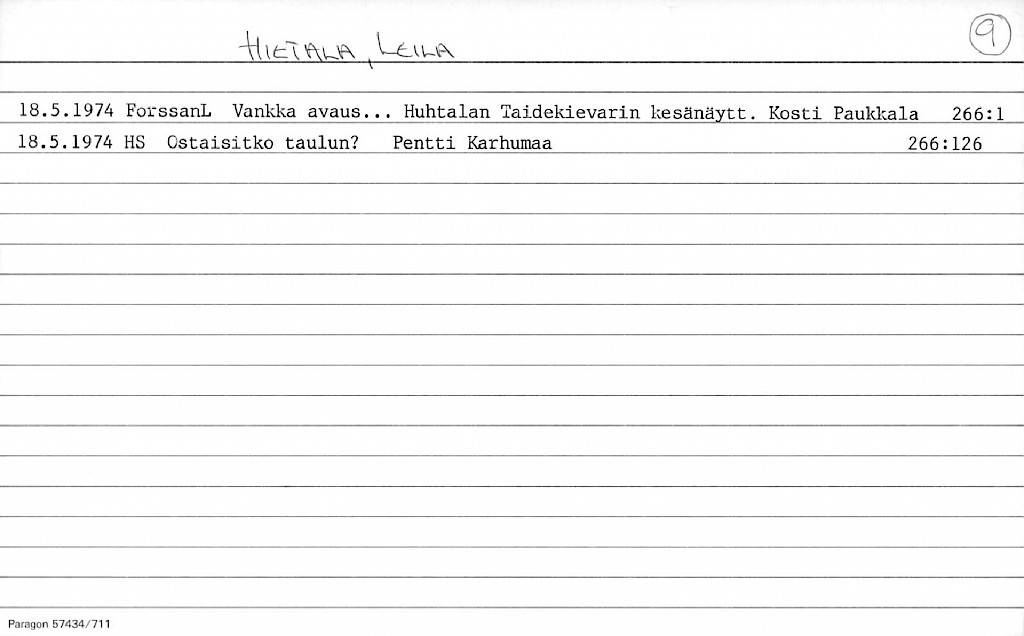 HIETALA, LEILA 9
18.5.1974 ForssanL Vankka avaus... Huhtalan Taidekievarin kesänäytt. Kosti Paukkala 266:1
18.5.1974 HS Ostaisitko taulun? Pentti Karhumaa 266:126
Paragon 57434/711